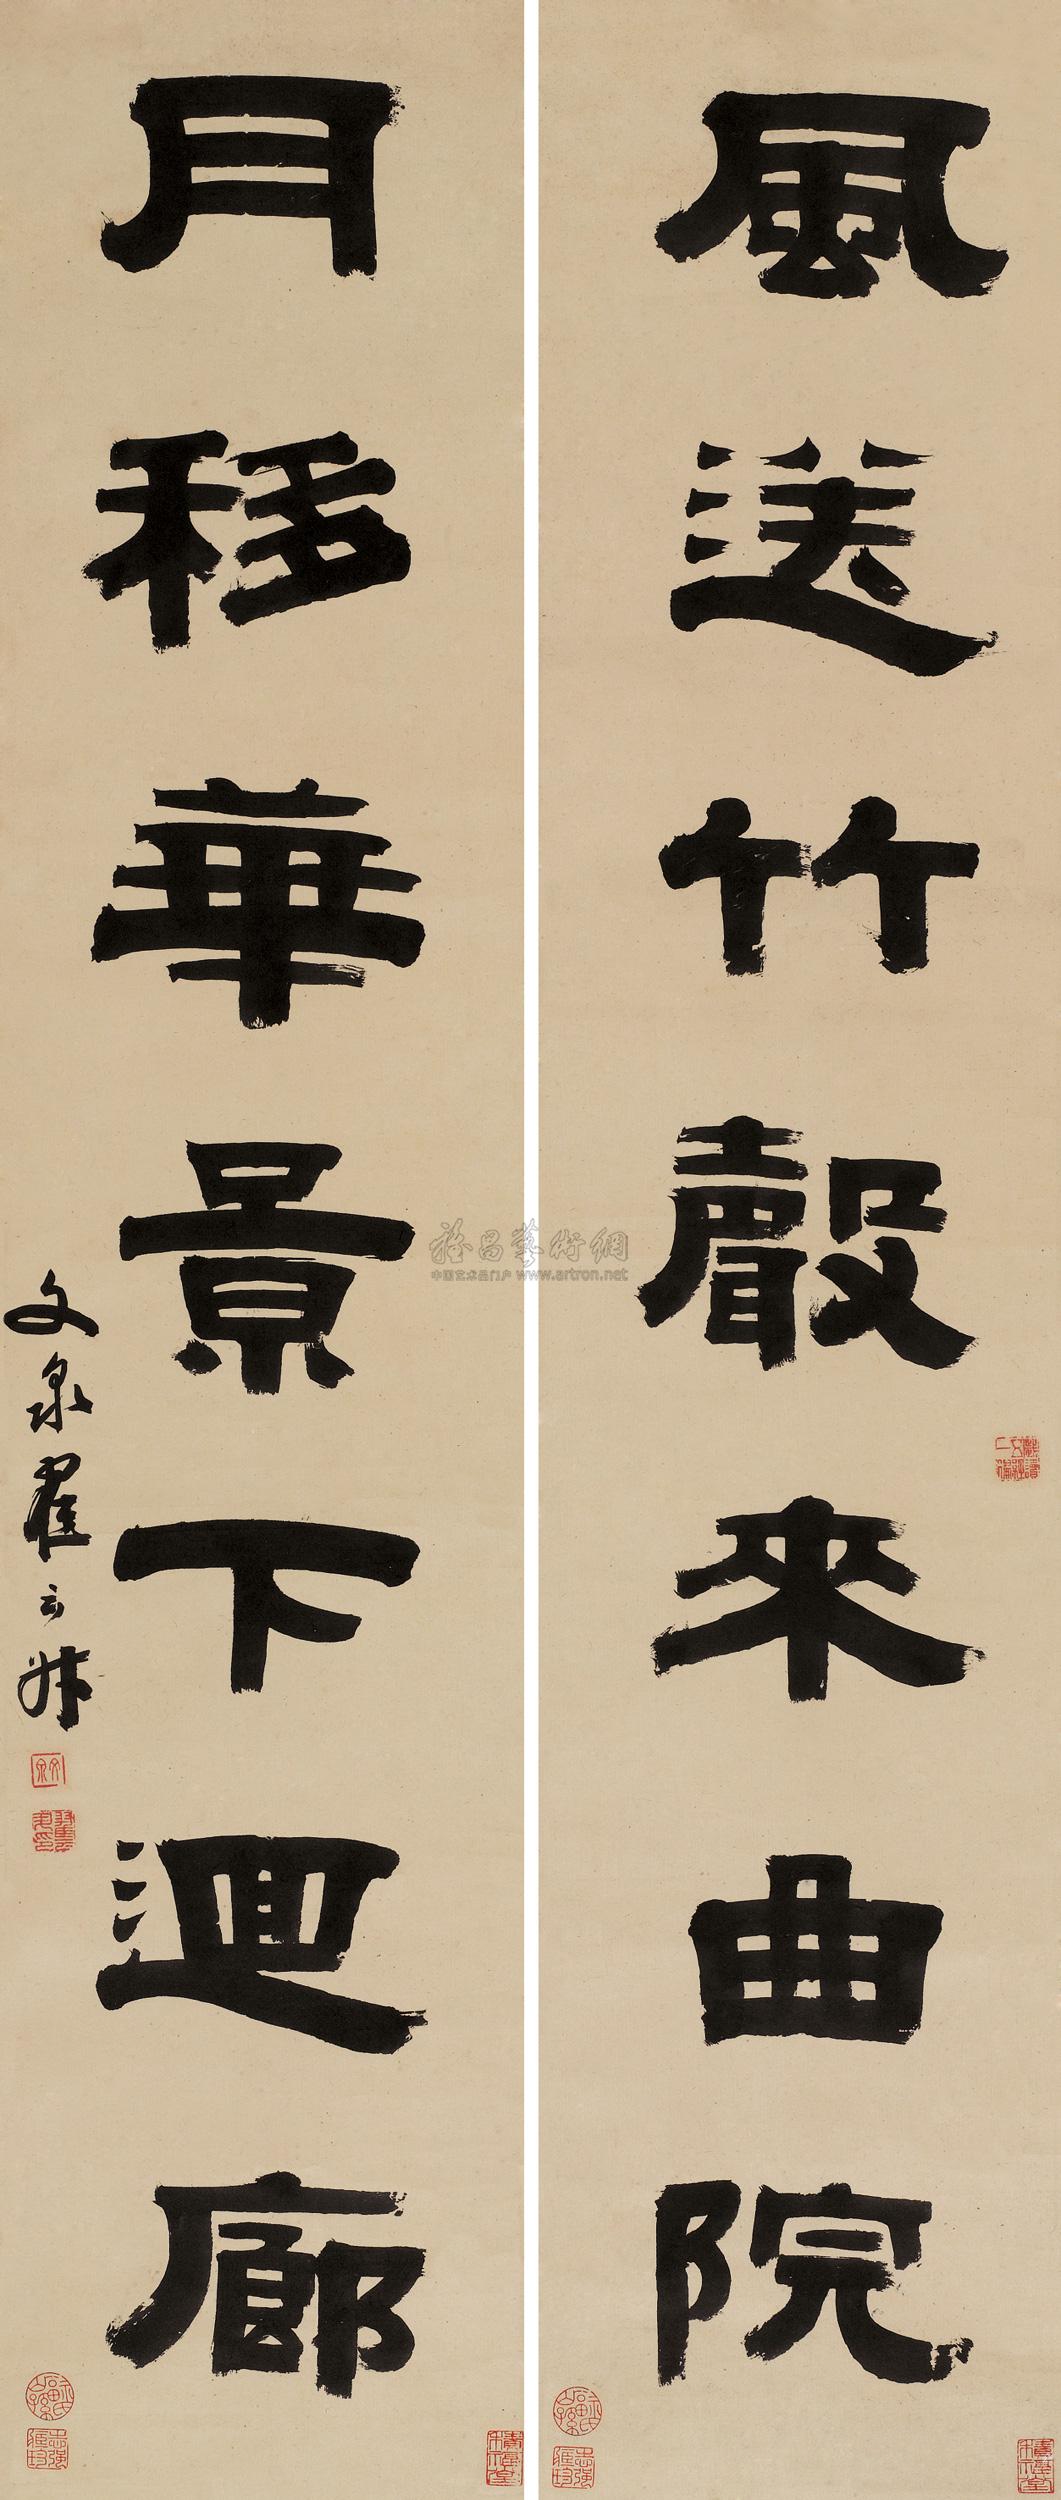 風送竹聲來曲院
月移華景下迴廊
文泉翟云升
文泉
雅昌藝術網
中国艺术品门户 www.artron.net